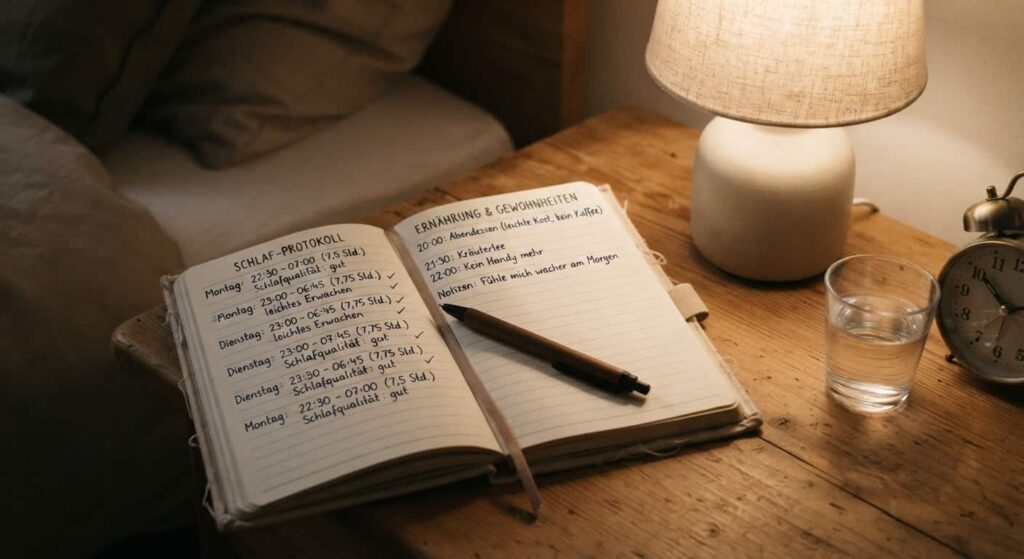 SCHLAF-PROTOKOLL
Montag: 22:30 – 07:00 (7,5 Std.)
Schlafqualität: gut
Montag: 23:00 – 06:45 (7,75 Std.) ✓
leichtes Erwachen
Dienstag: 23:00 – 06:45 (7,75 Std.) ✓
leichtes Erwachen
Dienstag: 23:00 – 07:45 (7,75 Std.) ✓
Schlafqualität: gut
Dienstag: 23:30 – 06:45 (7,75 Std.) ✓
Schlafqualität: gut
Montag: 22:30 – 07:00 (7,5 Std.)
Schlafqualität: gut
ERNÄHRUNG & GEWOHNHEITEN
20:00: Abendessen (leichte Kost, kein Kaffee)
21:30: Kräutertee
22:00: Kein Handy mehr
Notizen: Fühle mich wacher am Morgen